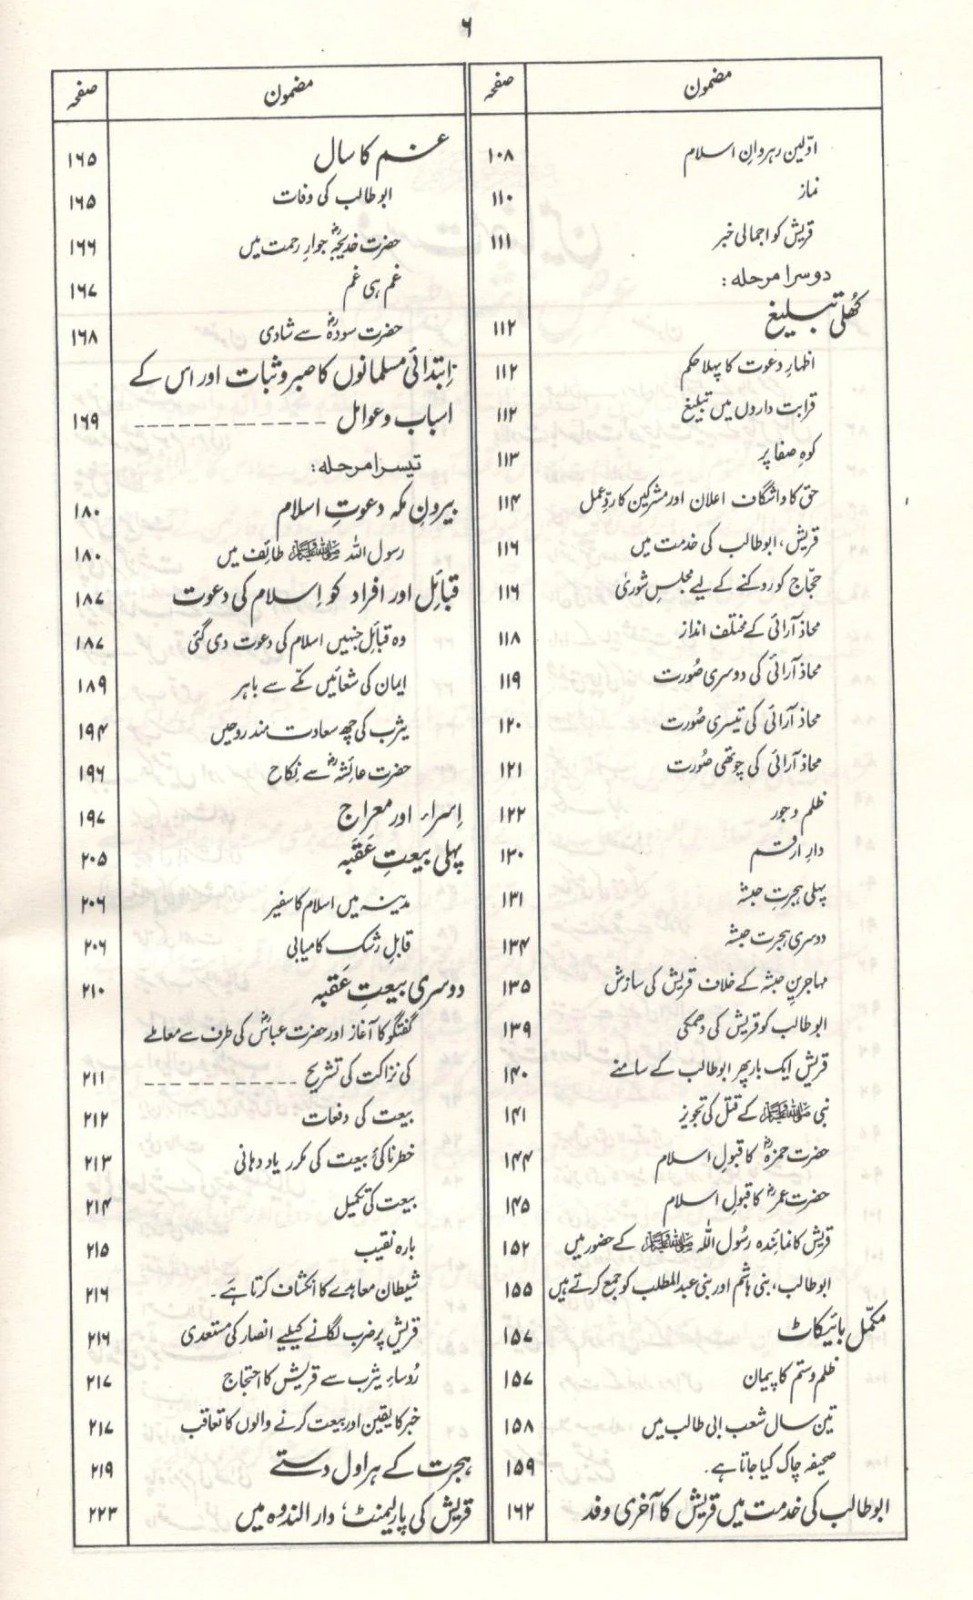 ۶
مضمون صفحہ
اوّلین رہروانِ اسلام ۱۰۸
نماز ۱۱۰
قریش کو اجمالی خبر ۱۱۱
دوسرا مرحلہ:
کھُلی تبلیغ ۱۱۲
اظہارِ دعوت کا پہلا حکم ۱۱۲
قرابت داروں میں تبلیغ ۱۱۲
کوہِ صفا پر ۱۱۳
حق کا واشگاف اعلان اور مشرکین کا ردِّ عمل ۱۱۴
قریش، ابوطالب کی خدمت میں ۱۱۶
حجّاج کو روکنے کے لیے مجلسِ شوریٰ ۱۱۶
محاذ آرائی کے مختلف انداز ۱۱۸
محاذ آرائی کی دوسری صُورت ۱۱۹
محاذ آرائی کی تیسری صُورت ۱۲۰
محاذ آرائی کی چوتھی صُورت ۱۲۱
ظلم و جور ۱۲۲
دارِ ارقم ۱۳۰
پہلی ہجرتِ حبشہ ۱۳۱
دوسری ہجرت حبشہ ۱۳۴
مہاجرینِ حبشہ کے خلاف قریش کی سازش ۱۳۵
ابوطالب کو قریش کی دھمکی ۱۳۹
قریش ایک بار پھر ابوطالب کے سامنے ۱۴۰
نبی ﷺ کے قتل کی تجویز ۱۴۱
حضرت حمزہؓ کا قبولِ اسلام ۱۴۴
حضرت عمرؓ کا قبولِ اسلام ۱۴۵
قریش کا نمائندہ رسُول اللہ ﷺ کے حضور میں ۱۵۲
ابوطالب، بنی ہاشم اور بنی عبدالمطلب کو جمع کرتے ہیں ۱۵۵
مکمّل بائیکاٹ ۱۵۷
ظلم و ستم کا پیمان ۱۵۷
تین سال شعب ابی طالب میں ۱۵۸
صحیفہ چاک کیا جاتا ہے۔ ۱۵۹
ابوطالب کی خدمت میں قریش کا آخری وفد ۱۶۲
مضمون صفحہ
غم کا سال ۱۶۵
ابوطالب کی وفات ۱۶۵
حضرت خدیجہؓ جوارِ رحمت میں ۱۶۶
غم ہی غم ۱۶۷
حضرت سودہؓ سے شادی ۱۶۸
اِبتدائی مسلمانوں کا صبر و ثبات اور اس کے
اسباب و عوامل ------------ ۱۶۹
تیسرا مرحلہ:
بیرونِ مکہ دعوتِ اسلام ۱۸۰
رسول اللہ ﷺ طائف میں ۱۸۰
قبائل اور افراد کو اِسلام کی دعوت ۱۸۷
وہ قبائل جنہیں اسلام کی دعوت دی گئی ۱۸۷
ایمان کی شعائیں مکّے سے باہر ۱۸۹
یثرب کی چھ سعادت مند روحیں ۱۹۴
حضرت عائشہؓ سے نِکاح ۱۹۶
اِسراء اور معراج ۱۹۷
پہلی بیعتِ عَقَبہ ۲۰۵
مدینہ میں اسلام کا سفیر ۲۰۶
قابلِ رشک کامیابی ۲۰۶
دوسری بیعتِ عَقَبہ ۲۱۰
گفتگو کا آغاز اور حضرت عباسؓ کی طرف سے معاملے
کی نزاکت کی تشریح ---------- ۲۱۱
بیعت کی دفعات ۲۱۲
خطرناکئ بیعت کی مکرر یاد دہانی ۲۱۳
بیعت کی تکمیل ۲۱۴
بارہ نقیب ۲۱۵
شیطان معاہدے کا انکشاف کرتا ہَے۔ ۲۱۶
قریش پر ضرب لگانے کیلئے انصار کی مستعدی ۲۱۶
رُوساءِ یثرب سے قریش کا احتجاج ۲۱۷
خبر کا یقین اور بیعت کرنے والوں کا تعاقب ۲۱۷
ہجرت کے ہراول دستے ۲۱۹
قریش کی پارلیمنٹ، دار الندوہ میں ۲۲۳